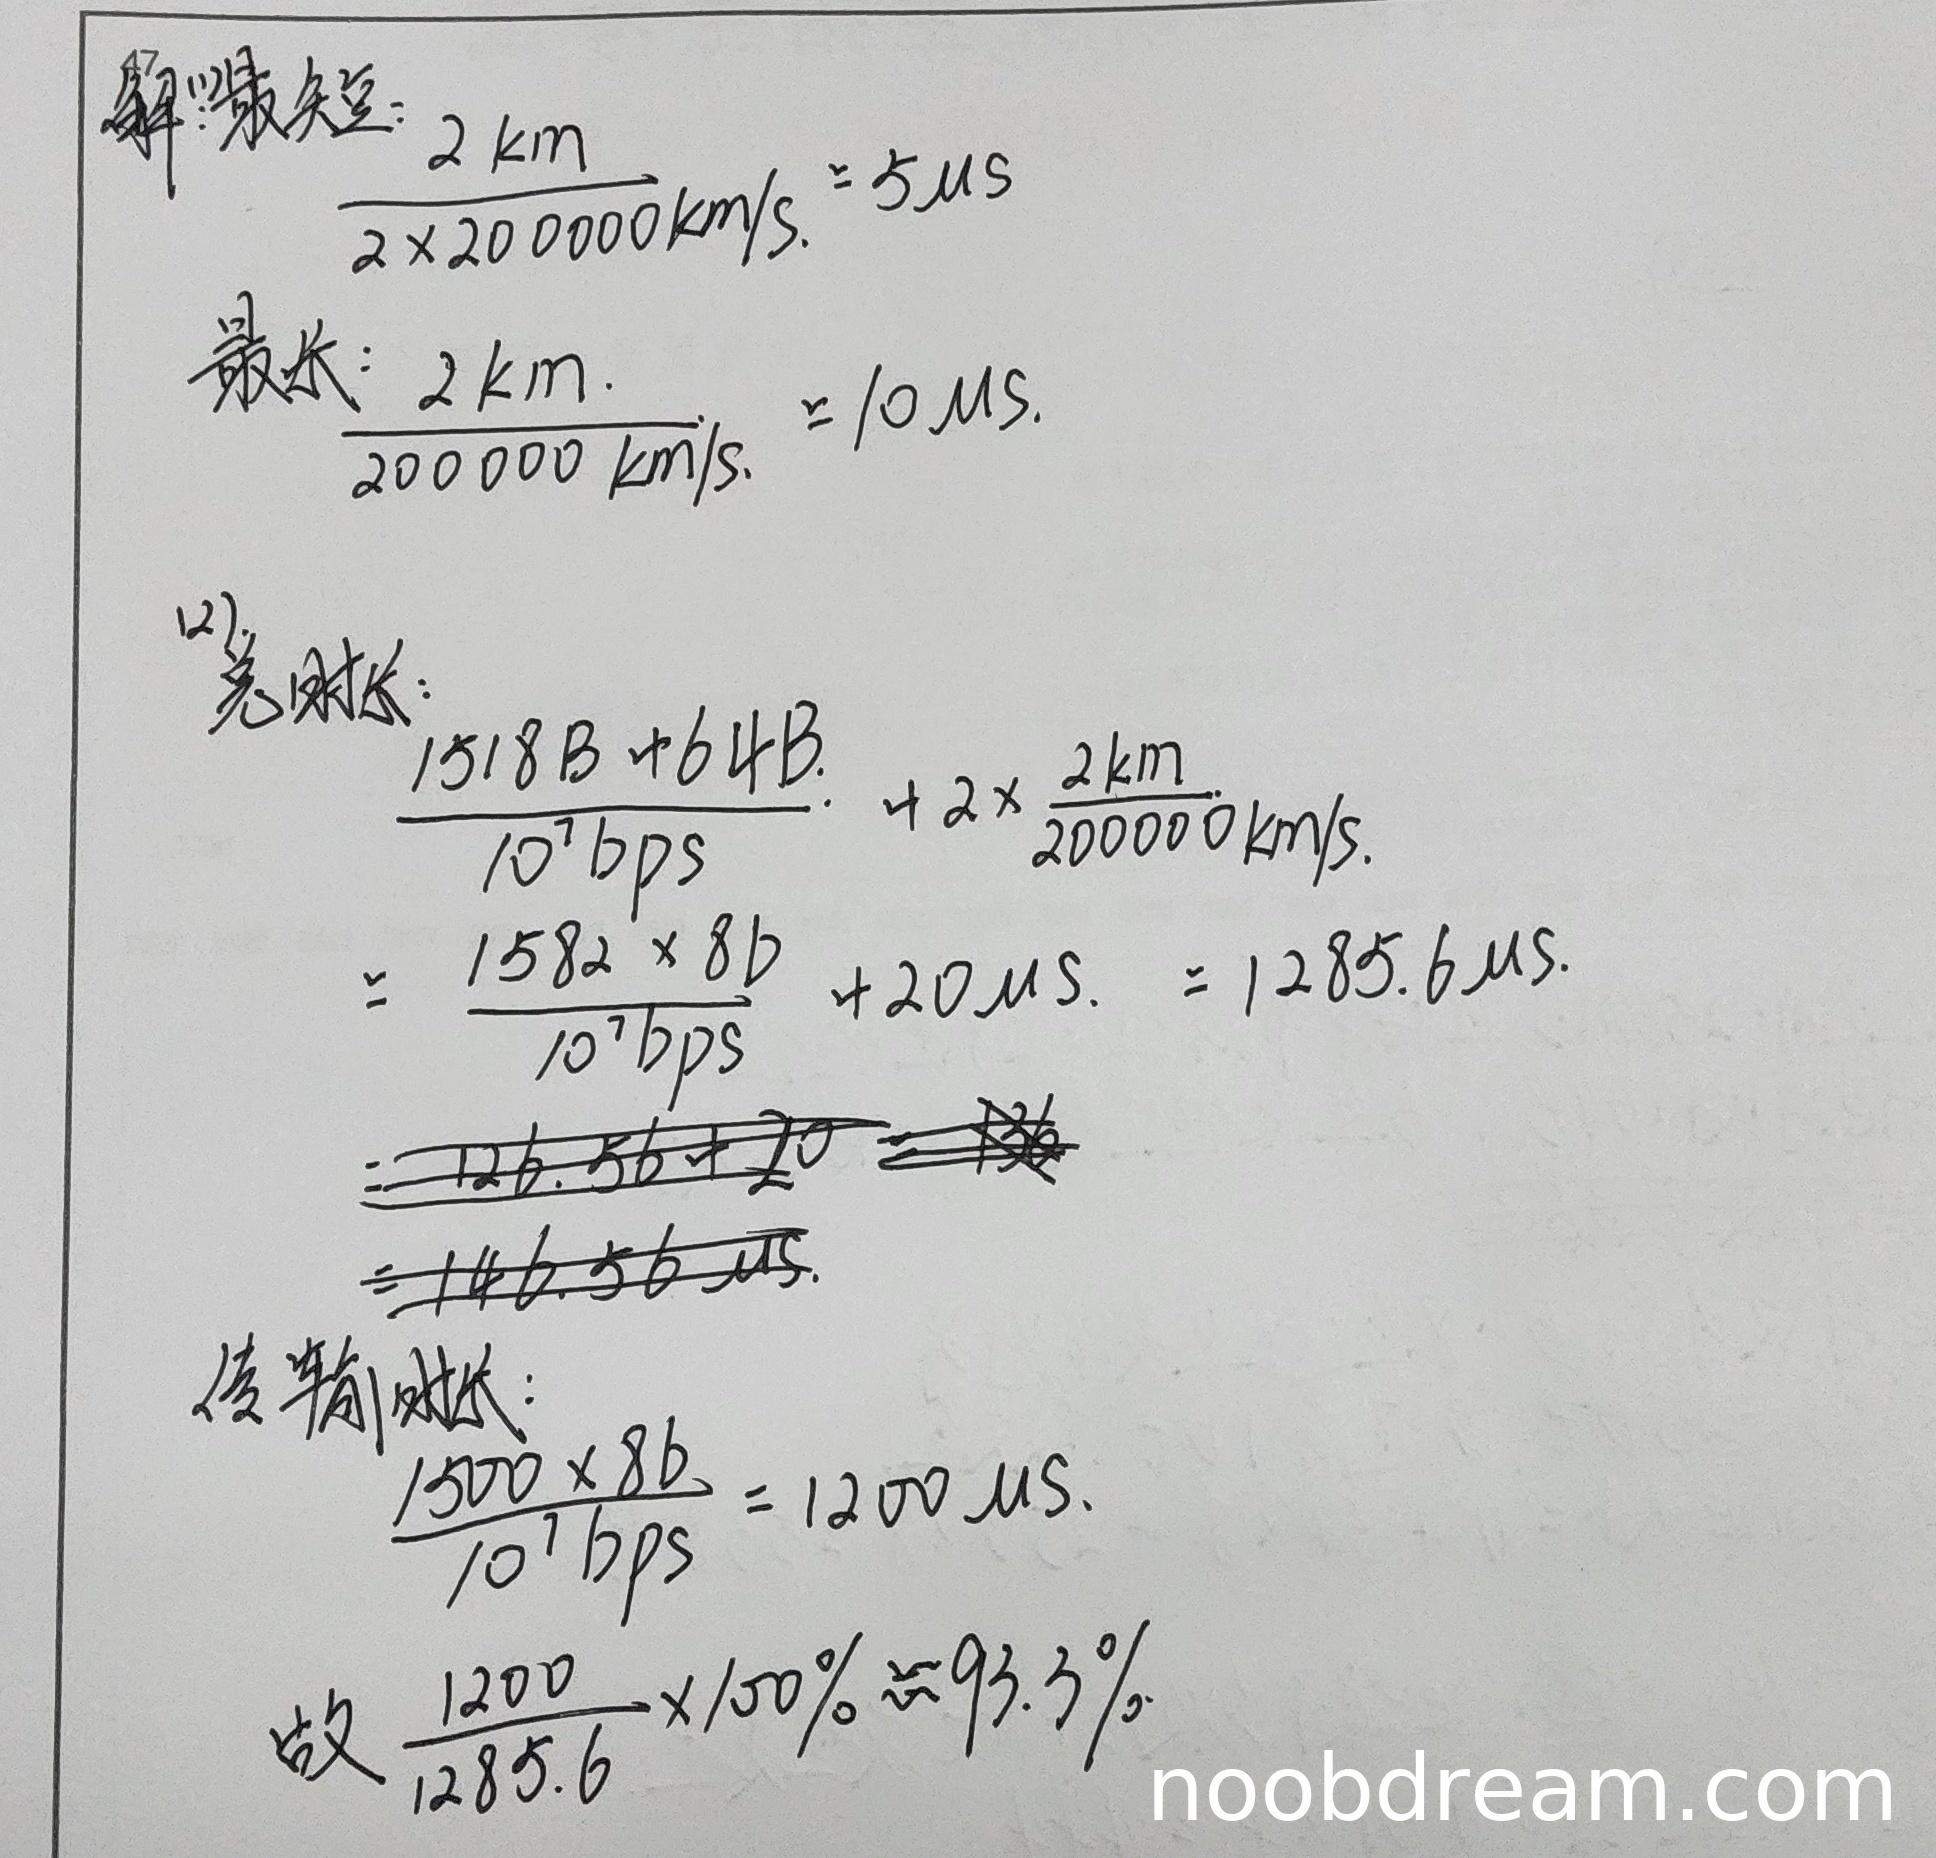 47
解:(1)最短:
2km / 2×200000km/s. = 5μs
最长: 2km. / 200000 km/s. = 10μs.
(2).
总时长:
1518B+64B. / 10^7bps + 2× 2km / 200000km/s.
= 1582×8b / 10^7bps +20μs. = 1285.6μs.
=126.56+20 = 136
=146.56μs.
传输时长:
1500×8b / 10^7bps = 1200μs.
故 1200 / 1285.6 ×100% ≈93.3%.
noobdream.com